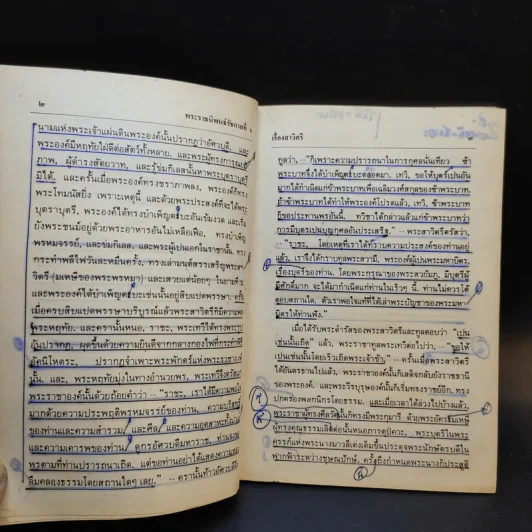 ๒
พระราชนิพนธ์รัชกาลที่ ๖
นามแห่งพระเจ้าแผ่นดินพระองค์นั้นปรากฏว่าอัศวบดี, และ
พระองค์มีหฤทัยใฝ่ดีต่อสัตว์ทั้งหลาย, และพระผู้ทรงการุณย
ภาพ, ผู้ดำรงสัตยวาท, และข่มกิเลสนั้นหาพระบุตราบุตรี
มิได้. และครั้นเมื่อพระองค์ทรงชราภาพลง, พระองค์ก็ทรง
พระโทมนัสยิ่ง เพราะเหตุนี้ และด้วยพระประสงค์ที่จะได้พระ
บุตราบุตรี, พระองค์ได้ทรงบำเพ็ญตะบะอันเข้มงวด และเริ่ม
ยังพระชนม์อยู่ด้วยพระอาหารอันไม่เหลือเฟือ, ทรงบำเพ็ญ
พรหมจรรย์, และข่มกิเลส, และพระผู้เป็นเอกในราชานั้น, ทรง
กระทำพลีไฟวันละหมื่นครั้ง, ทรงเล่ามนต์สรรเสริญพระสา
วิตรี (มเหษีของพระพรหมา) และเสวยแต่น้อยๆ ในยามที่ ๖
และพระองค์ได้บำเพ็ญตะบะเช่นนั้นอยู่สิบแปดพรรษา, ครั้น
เมื่อครบสิบแปดพรรษาบริบูรณ์แล้วพระสาวิตรีก็มีความพอ
พระหฤทัย. และคราวนั้นหนอ, ราชะ, พระเทวีได้ทรงพระรูป
อันปรากฏ, ผุดขึ้นด้วยความยินดีจากกลางกองไฟที่กระทำพิธี
อัคนิโหตระ, ปรากฏจำเพาะพระพักตร์แห่งพระราชาองค์
นั้น. และ, พระหฤทัยมุ่งในทางอำนวยพร, พระเทวีจึ่งตรัสแด่
พระราชาองค์นั้นด้วยถ้อยคำว่า -- "ราชะ, เราได้มีความพอใจ
มากด้วยความประพฤติพรหมจรรย์ของท่าน, ความบริสุทธิ์
ของท่านและความสำรวม และศีล และความอุตสาหะทั้งปวง
และความเคารพของท่าน ดูกรอัศวบดีมหาราช, ท่านจงขอ
พรตามที่ท่านปรารถนาเถิด. แต่ขอท่านอย่าได้แสดงความหลง
ลืมคลองธรรมโดยสถานใดๆ เลย." -- ครานั้นท้าวอัศวบดีจึ่ง
เรื่องสาวิตรี
ทูลว่า, -- "ก็เพราะความปรารถนาในการกุศลนั้นเทียว ข้า
พระบาทจึ่งได้บำเพ็ญตะบะตลอดมา. เทวี, ขอให้บุตรเป็นอัน
มากได้กำเนิดแก่ข้าพระบาทเพื่อเฉลิมวงศ์สกุลของข้าพระบาท.
ถ้าข้าพระบาทได้ทำให้พระองค์โปรดแล้ว, เทวี, ข้าพระบาท
ก็ขอประทานพรอันนี้. ทวิชาได้กล่าวแล้วแก่ข้าพระบาทว่า
การมีบุตรเป็นบุญกุศลอันประเสริฐ." -- พระสาวิตรีตรัสว่า,
-- "ราชะ, โดยเหตุที่เราได้ทราบความประสงค์ของท่านอยู่
แล้ว, เราจึ่งได้กราบทูลพระสวามี, พระองค์ผู้เป็นพระมหาบิดร,
เรื่องบุตรีของท่าน. โดยพระกรุณาของพระสวยัมภู, มีบุตรีผู้
มีศักดิ์มาก จะได้มากำเนิดแก่ท่านในเร็วๆ นี้. ท่านไม่ควรโต้
ตอบสถานใด. ตัวเราพอใจแท้ที่ได้เล่าพระบัญชาของพระมหา
บิดรให้ท่านฟัง."
เมื่อได้รับพระดำรัสของพระสาวิตรีและทูลตอบว่า "เปน
เช่นนั้นเถิด" แล้ว, พระราชาทูลพระเทวีต่อไปว่า, -- "ขอให้
เปนเช่นนั้นโดยเร็วเถิดพระเจ้าข้า," -- ครั้นเมื่อพระสาวิตรี
ได้อันตรธานไปแล้ว, พระราชาองค์นั้นก็เสด็จกลับยังราชธานี
ของพระองค์. และพระวีรบุรุษองค์นั้นก็เริ่มทรงราชย์อีก, ทรง
ปกครองพสกนิกรโดยธรรม. และเมื่อเวลาได้ล่วงไปบ้างแล้ว,
พระราชาผู้ทรงศีลวัตนั้นก็ทรงมีพระกุมารี ด้วยพระอัครมเหษี
ผู้ทรงคุณธรรมเลิศต่อนั้นหนอภารตฤษิภะ, พระบุตรีในพระ
ครรภ์แห่งพระนางมาวลีเต่งเติมขึ้นประดุจพระนักษัตรบดีใน
ฟากฟ้าระหว่างชุษณปักษ์. ครั้งถึงกำหนดพระนางก็ประสูติ